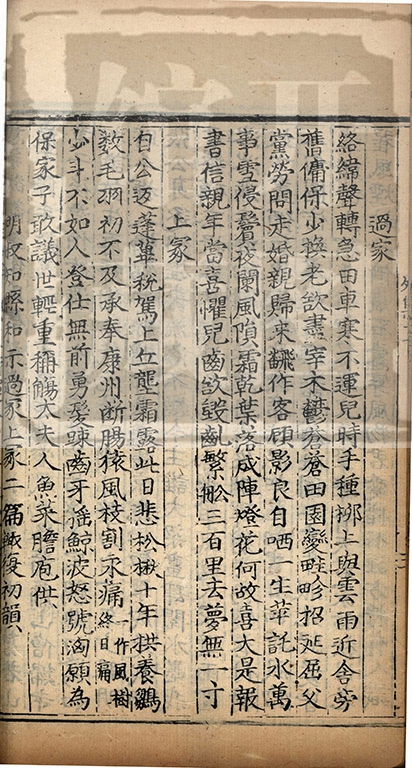 過家
絡緯聲轉急田車寒不運兒時手種桺上與雲雨近舍旁
舊傭保少換老欲盡宰木鬱蒼蒼田園變畦畛招延屈父
黨勞問走婚親歸來飜作客顧影良自哂一生萍託水萬
事雪侵鬢夜闌風隕霜乾葉落成陣燈花何故喜大是報
書信親年當喜懼兒齒欲毀齔繫船三百里去夢無一寸
上冢
自公返蓬蓽稅駕上丘壟霜露此日悲松楸十年拱養鶵
數毛羽初不及承奉康州斷腸猿風枝割永痛一作風樹終日痛
少斗不如人登仕無前勇髮疎齒牙搖鯨波怒號洶願為
保家子敢議世輕重稱觴大夫人魚菜贍庖供
明叔知縣和示過家上冢二篇輒復初韻